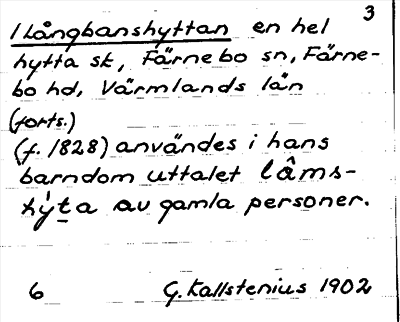 3
1 Långbanshyttan en hel
hytta sk, Färnebo sn, Färne-
bo hd, Värmlands län
(forts.)
(f. 1828) användes i hans
barndom uttalet lâms-
hy̍ṯa av gamla personer.
6 G. Kallstenius 1902